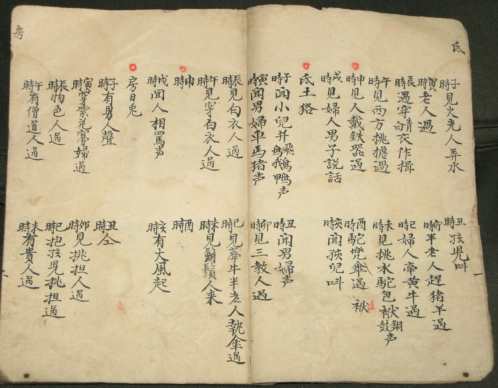 氐
子時見老人弄水
丑時孩児叫
寅時老人過
卯時羊老人趕猪羊過
辰時遇穿青衣作揖
巳時婦人黃牛過
午時見西方挑擔過
未時見挑水駝包袱鼓声
申時見人戴鉄器過
酉時駝凳傘過
戌時見婦人男子說話
亥時聞孩児叫
氐土狢
子時聞小児并鵝鴨声
丑時聞男婦声
寅時聞男婦車馬猪声
卯時見三教人過
辰時見白衣人過
巳時見牽牛羊老人執傘過
午時見穿白衣人過
未時見人来
申時
酉時
戌時聞人相罵声
亥時有大風起
房日兎
子時有男人聲
丑時
寅時穿孝婦過
卯時見挑担人過
辰時色人過
巳時抱孩児挑担過
午時有僧道人過
未時有貴人過
房